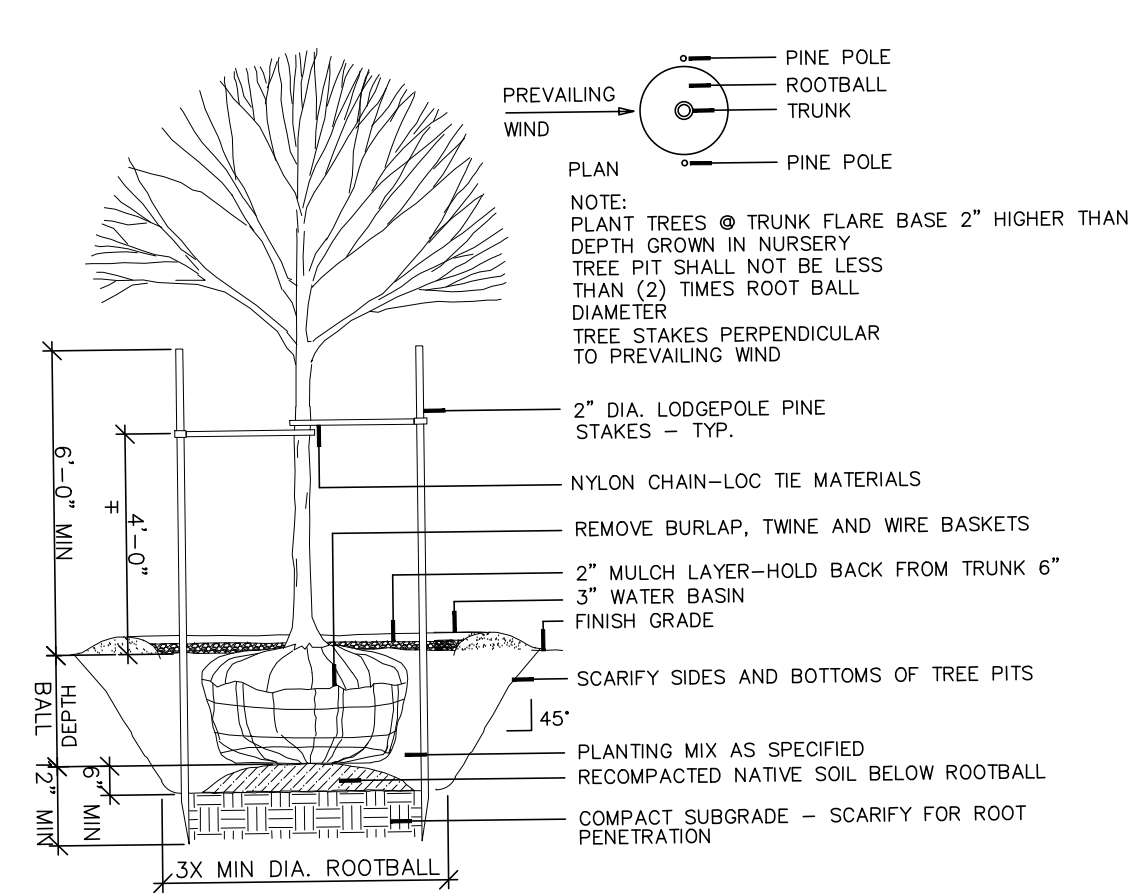 PREVAILING
WIND
PINE POLE
ROOTBALL
TRUNK
PINE POLE
PLAN
NOTE:
PLANT TREES @ TRUNK FLARE BASE 2” HIGHER THAN
DEPTH GROWN IN NURSERY
TREE PIT SHALL NOT BE LESS
THAN (2) TIMES ROOT BALL
DIAMETER
TREE STAKES PERPENDICULAR
TO PREVAILING WIND
2” DIA. LODGEPOLE PINE
STAKES – TYP.
NYLON CHAIN–LOC TIE MATERIALS
REMOVE BURLAP, TWINE AND WIRE BASKETS
2” MULCH LAYER–HOLD BACK FROM TRUNK 6”
3” WATER BASIN
FINISH GRADE
SCARIFY SIDES AND BOTTOMS OF TREE PITS
45°
PLANTING MIX AS SPECIFIED
RECOMPACTED NATIVE SOIL BELOW ROOTBALL
COMPACT SUBGRADE – SCARIFY FOR ROOT
PENETRATION
6’–0” MIN
4’–0”
∓
BALL
DEPTH
2” MIN
6” MIN
3X MIN DIA. ROOTBALL